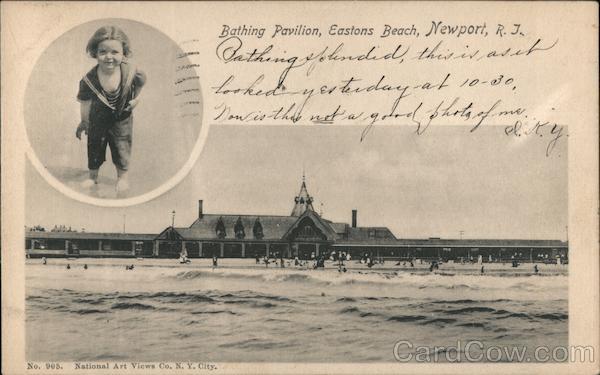 Bathing Pavilion, Eastons Beach, Newport, R. I.
Bathing splendid, this is as it
looked yesterday at 10-30,
Now is this not a good photo of me.
No. 965. National Art Views Co. N. Y. City.
CardCow.com